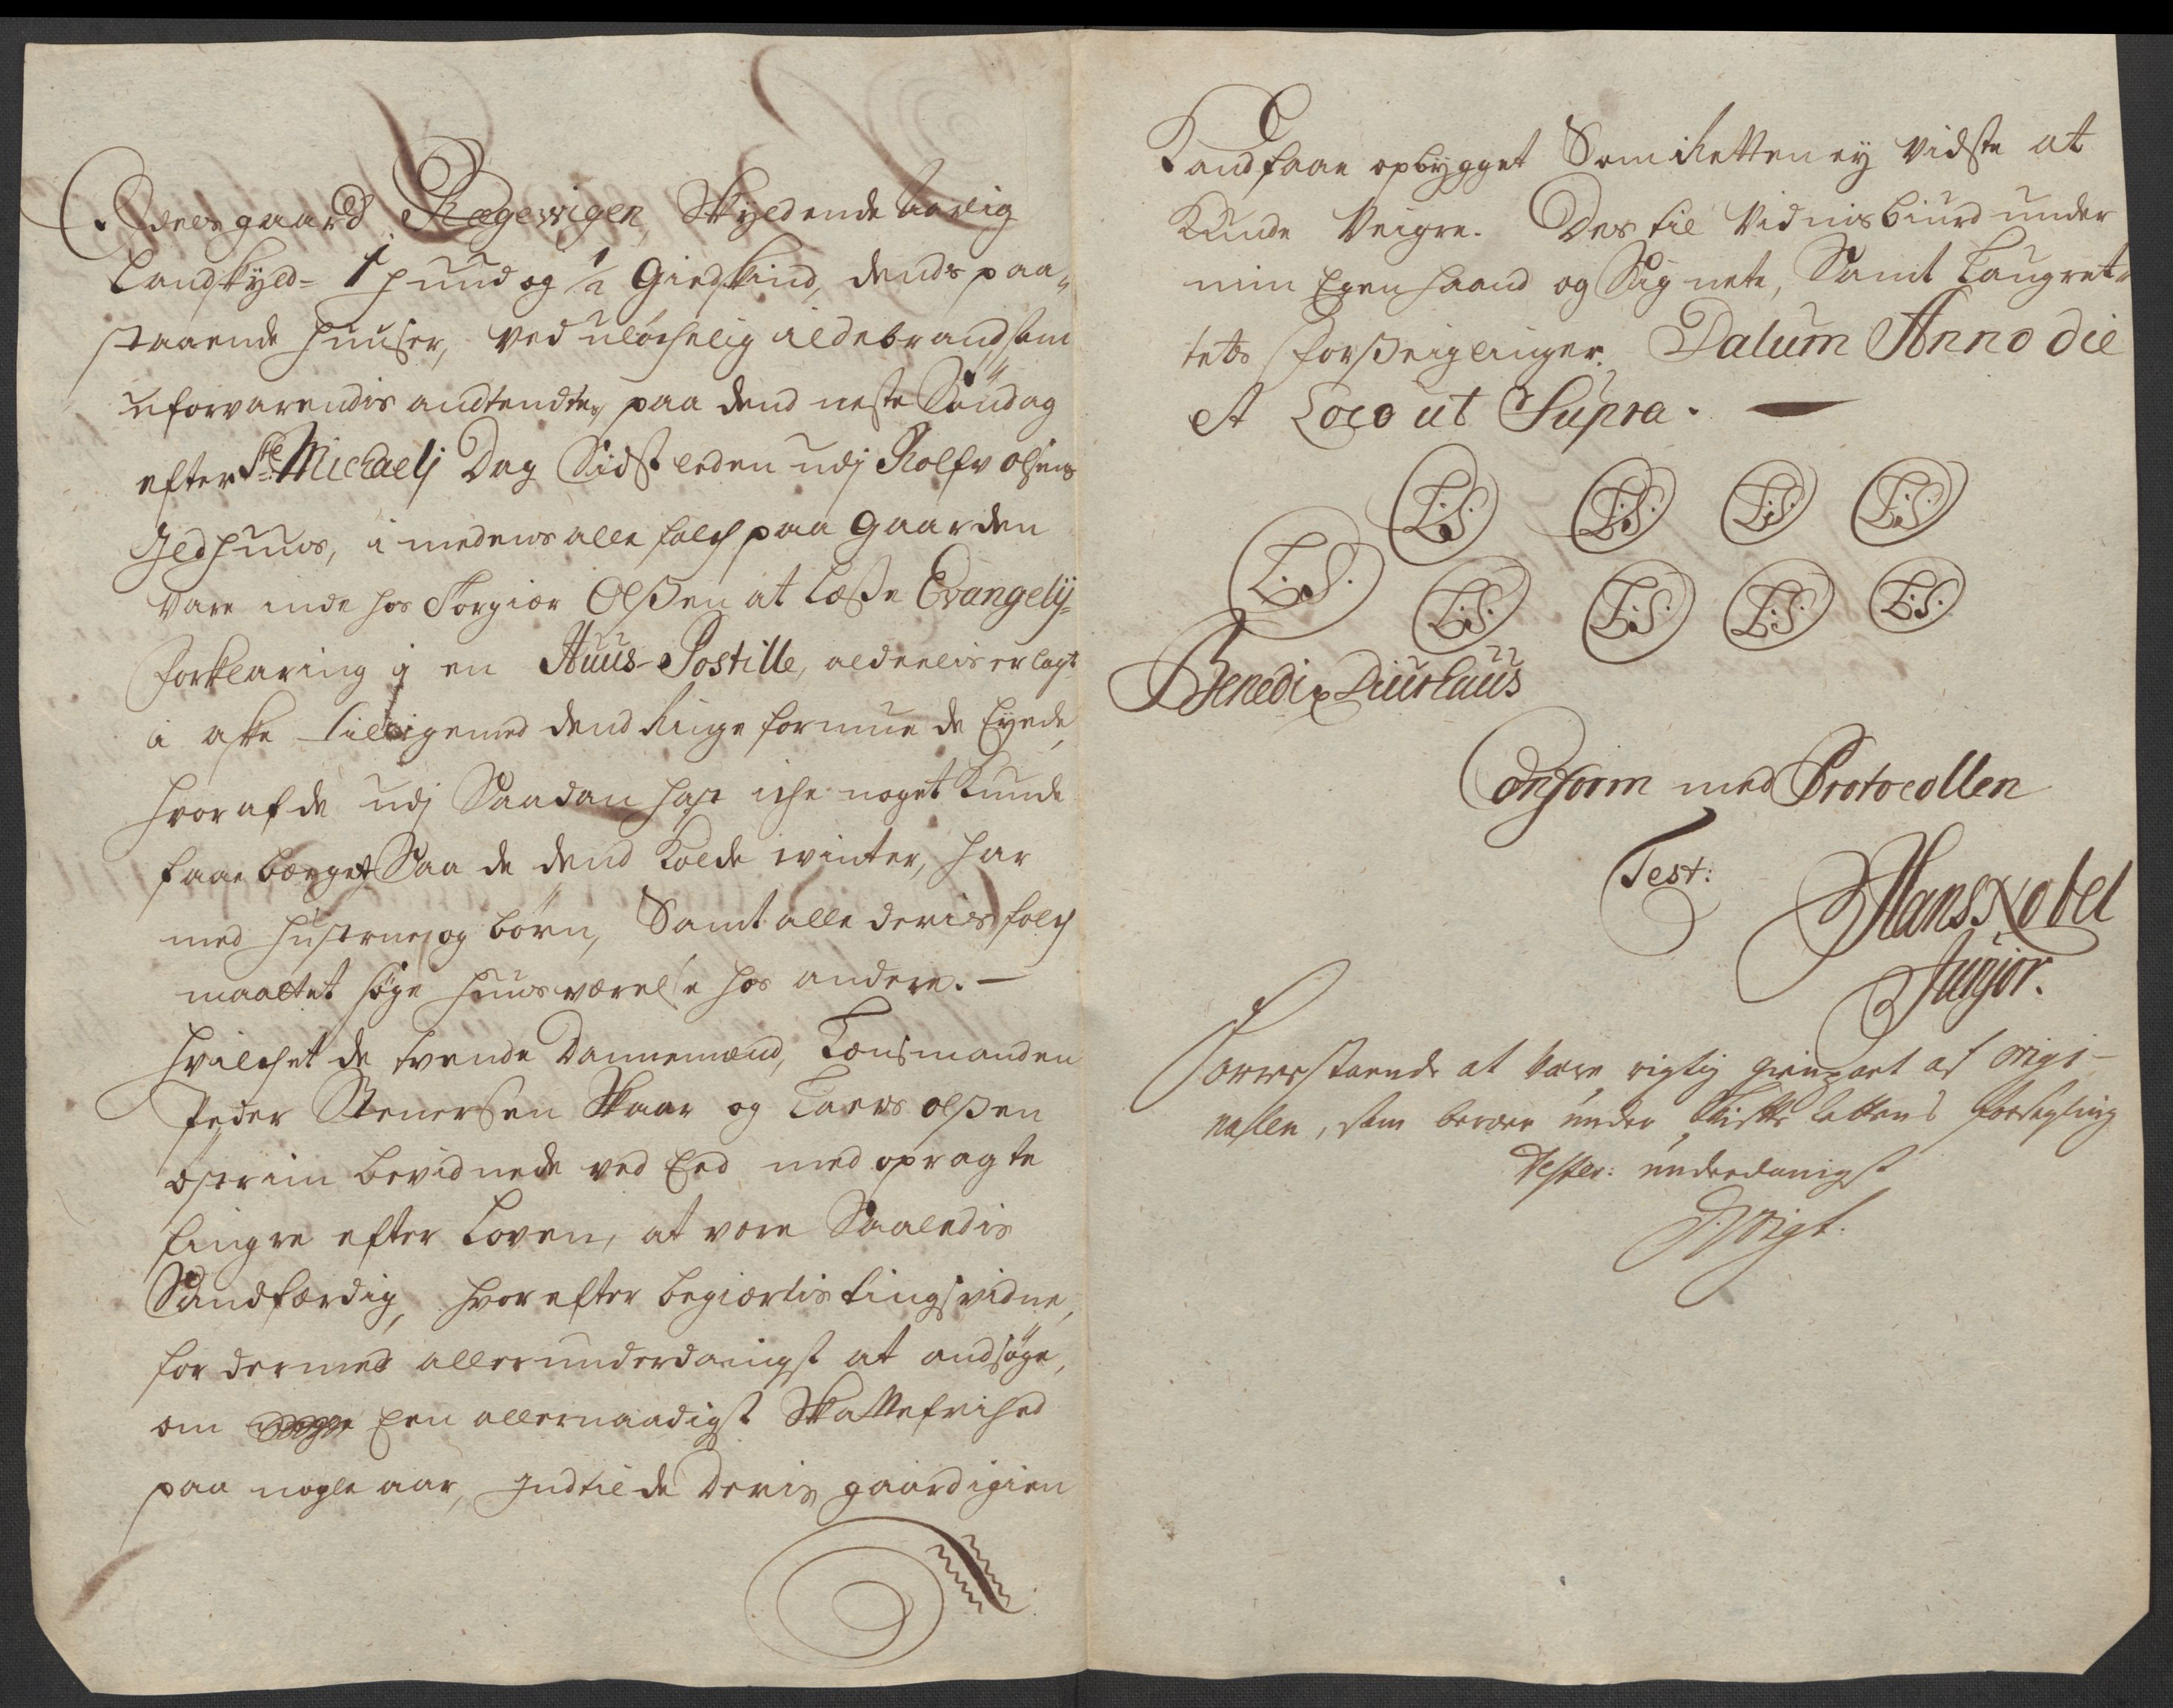 Deres gaard Rægevigen, Skyldende Aarlig
Landskyld- 1 hund og 1/2 Giedskind, dends paa-
staaende huuser, ved ulöchelig ildebrand som
uforvarendis andtendtes paa dend neste Söndag
efter Ste Michaelj Dag Sidst leden udj Rolfv olsens
Ildhuus, i medens alle folch paa gaarden
vare inde hos Torgier Olßen at læße Evangelij-
forklaring i en Huus-Postille, aldeelis erlagt
i aske tillige med dend ringe formue de Eyede,
hvoraf de udj Saadan hast iche noget kunde
faae bærget, Saa de dend kolde winter, har
med hustruer og börn, Samt alle deris folch
maattet söge huusværelse hos andere. —
hvilchet de tvende Dannemænd, Lensmanden
Peder Stenersen Skaar og Laers olßen
östreim bevidnede ved Eed med opragte
fingre efter Loven, at være Saaledis
Sandfærdig, hvorefter begiærtis tingsvidne,
for dermed allerunderdanigst at andsöge,
om Een allernaadigst Skattefrihed
paa nogle aar, Indtil de Deris gaard igien
Kand faae opbygget Som Retten ey vidste at
Kunde Veigre. Des til Vidnisbiurd under
min Egen haand og Signete, Samt Laugret-
tets forßeiglinger. Datum Anno die
et Loco ut Supra. —
L.S. L.S. L.S. L.S.
L.S. L.S. L.S. L.S. L.S.
Benedix Diurhuus
Conform med Protocollen
Test:
Hans Nobel
Junior.
Forrestaaende at være rigtig gienpart af origi-
nalen, som beroer under Rettens forsegling
Tester: underdanigst